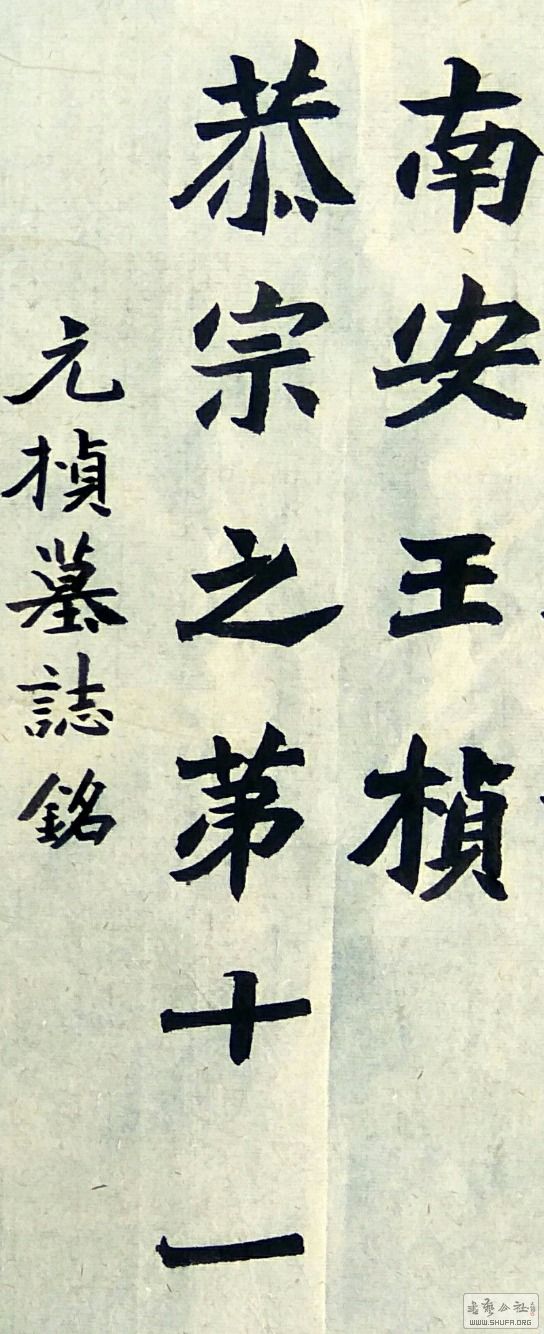 南安王楨
恭宗之苐十一
元楨墓誌銘
書藝公社
WWW.SHUFA.ORG